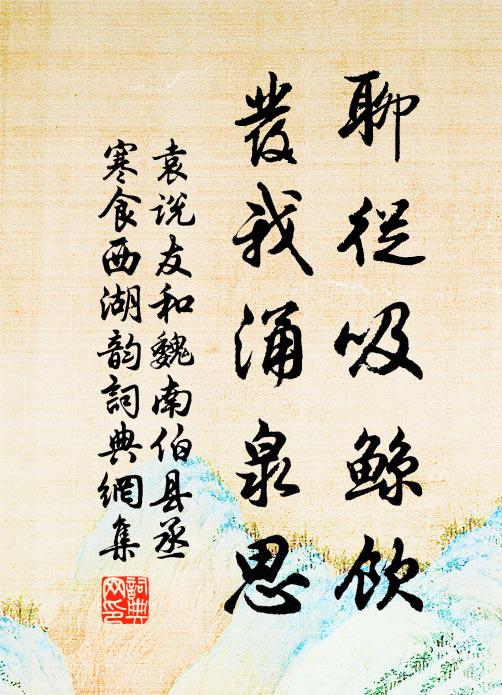 聊從吸鲸飲
發我涌泉思
袁说友和魏南伯县丞
寒食西湖韵詞典網集
詞典网印